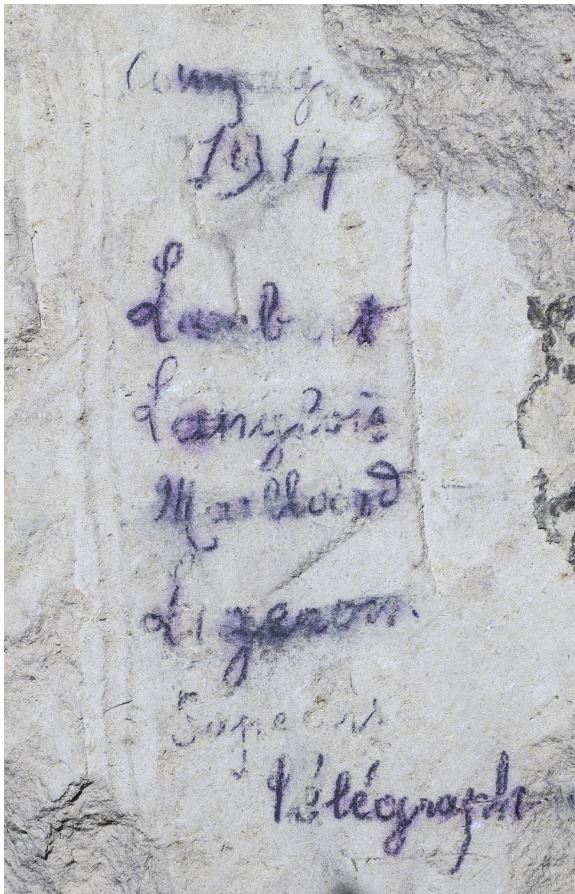 Campagne
1914
Lambert
Langlois
Mailloard
Ligenon.
Sapeurs
Télégraph